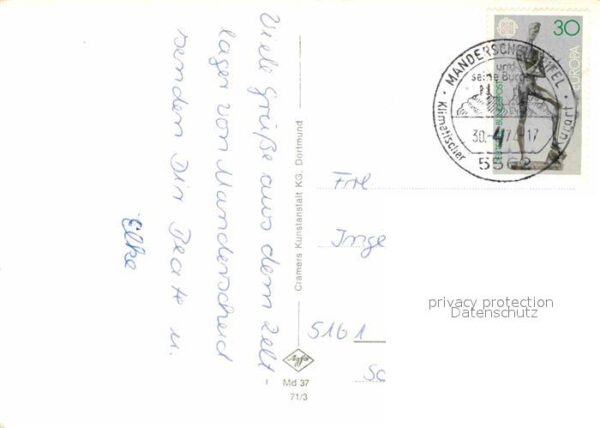 Viele Grüße aus dem Zelt-
lager von Manderscheid
senden Dir Beate u.
Elke
Cramers Kunstanstalt KG, Dortmund
Agfa
Md 37
71/3
30
EUROPA
DEUTSCHE BUNDESPOST
MANDERSCHEID/EIFEL
und
seine Burgen
Klimatischer Kurort
5562
Frl
Inge
5161
privacy protection
Datenschutz